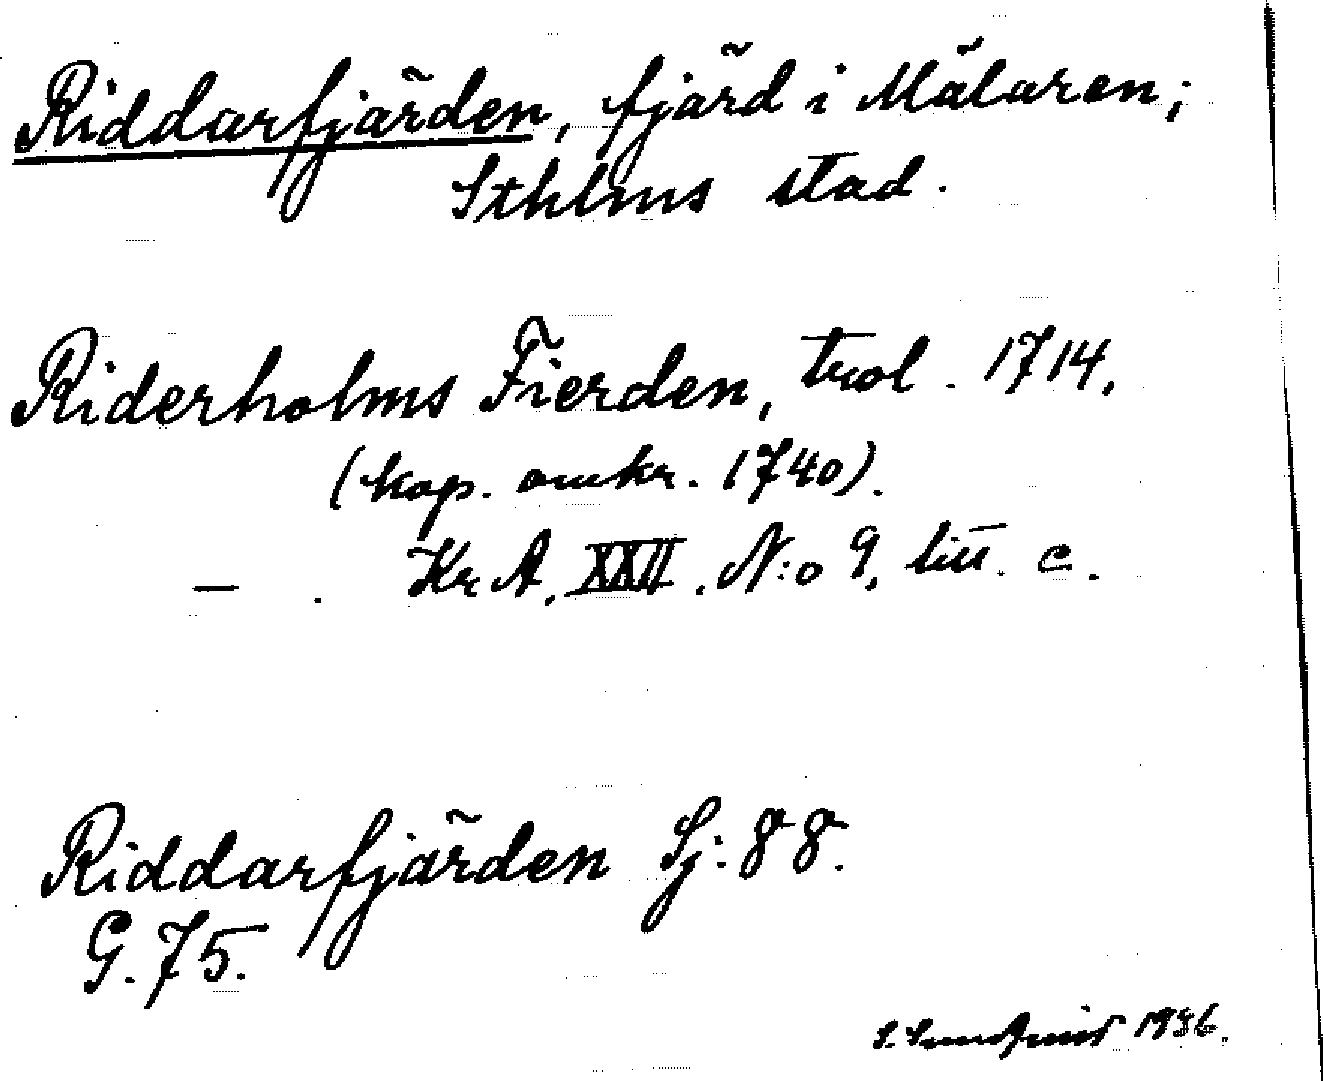 Riddarfjärden, fjärd i Mälaren;
Sthlms stad.
Riderholms Fierden, trol. 1714,
(kop. omkr. 1740).
— . Kr A. XXII. N:o 9, litt. c.
Riddarfjärden Sj: 88.
G. 75.
S. Sundquist 1936.